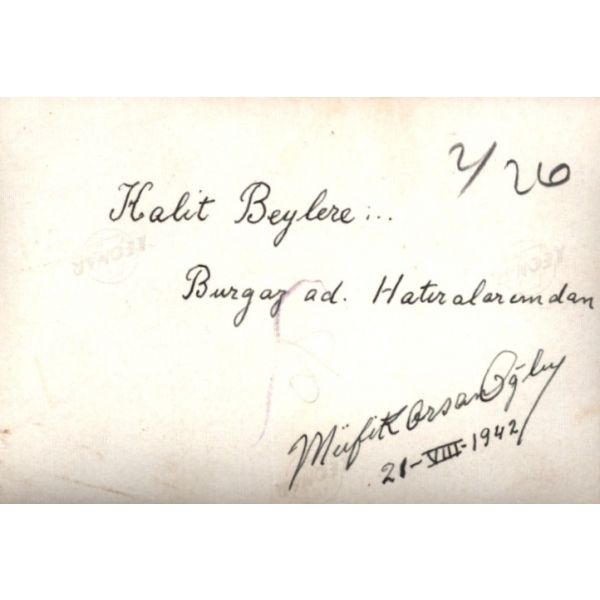 2/26
Halit Beylere:..
Burgaz ad. Hatıralarımdan
Müfit Arsan Oğlu
21-VIII-1942